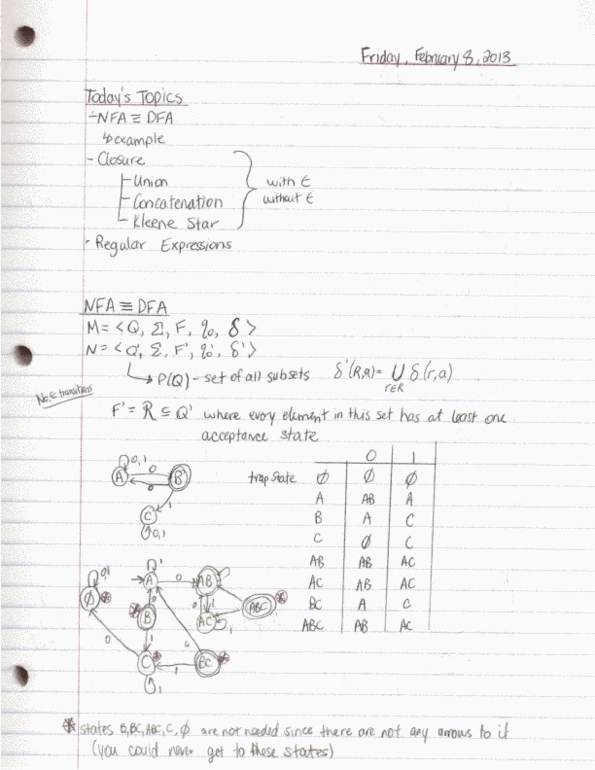 Friday, February 8, 2013
Today's Topics
- NFA ≡ DFA
↳ example
- Closure
Union
Concatenation
Kleene Star
with ε
without ε
- Regular Expressions
NFA ≡ DFA
M = < Q, Σ, F, q₀, δ >
N = < Q', Σ, F', q₀', δ' >
→ P(Q) - set of all subsets δ'(R,a) = ∪ δ(r,a)
r∈R
No ε transitions
F' = R ⊆ Q' where every element in this set has at least one
acceptance state
0 1
trap state ∅ ∅ ∅
A AB A
B A C
C ∅ C
AB AB AC
AC AB AC
BC A C
ABC AB AC
0,1
A 0 B
0
1
C
0,1
0,1 1
∅ * A 0 AB
B * 0 1 AC ABC *
1
0 C * 1 BC *
1
* states B, BC, ABC, C, ∅ are not needed since there are not any arrows to it
(you could never get to these states)